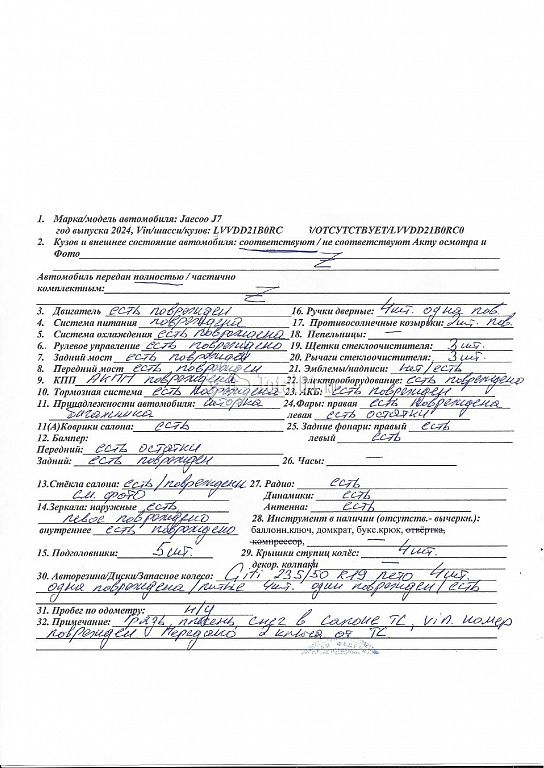 1. Марка/модель автомобиля: Jaecoo J7
год выпуска 2024, Vin/шасси/кузов: LVVDD21B0RC /ОТСУТСТВУЕТ/LVVDD21B0RC0
2. Кузов и внешнее состояние автомобиля: соответствуют / не соответствуют Акту осмотра и
Фото Z
Автомобиль передан полностью / частично
комплектным: Z
3. Двигатель есть поврежден 16. Ручки дверные: 4шт. одна пов.
4. Система питания повреждена 17. Противосолнечные козырьки: 2шт. пов.
5. Система охлаждения есть повреждена 18. Пепельницы: —
6. Рулевое управление есть повреждено 19. Щетки стеклоочистителя: 3 шт.
7. Задний мост есть поврежден 20. Рычаги стеклоочистителя: 3 шт.
8. Передний мост есть поврежден 21. Эмблемы/надписи: нит/есть
9. КПП АКПП повреждена 22. Электрооборудование: есть повреждено
10. Тормозная система есть повреждена 23. АКБ: есть поврежден
11. Принадлежности автомобиля: шторка 24.Фары: правая есть повреждена
багажника левая есть остатки
11(А)Коврики салона: есть 25. Задние фонари: правый есть
12. Бампер: левый есть
Передний: есть остатки
Задний: есть поврежден 26. Часы: —
13.Стёкла салона: есть/повреждены 27. Радио: есть
см. фото Динамики: есть
14.Зеркала: наружные есть, Антенна: есть
левое повреждено 28. Инструмент в наличии (отсутств.- вычеркн.):
внутреннее есть повреждено баллонн.ключ, домкрат, букс.крюк, отвёртка,
компрессор,
15. Подголовники: 5 шт. 29. Крышки ступиц колёс: 4 шт.
декор. колпаки
30. Авторезина/Диски/Запасное колесо: Giti 235/50 R19 лето 4шт.
одна повреждена/литые 4шт. один поврежден/есть
31. Пробег по одометру: н/у
32. Примечание: грязь, плесень, снег в салоне ТС, vin. номер
поврежден Передано 2 ключа от ТС